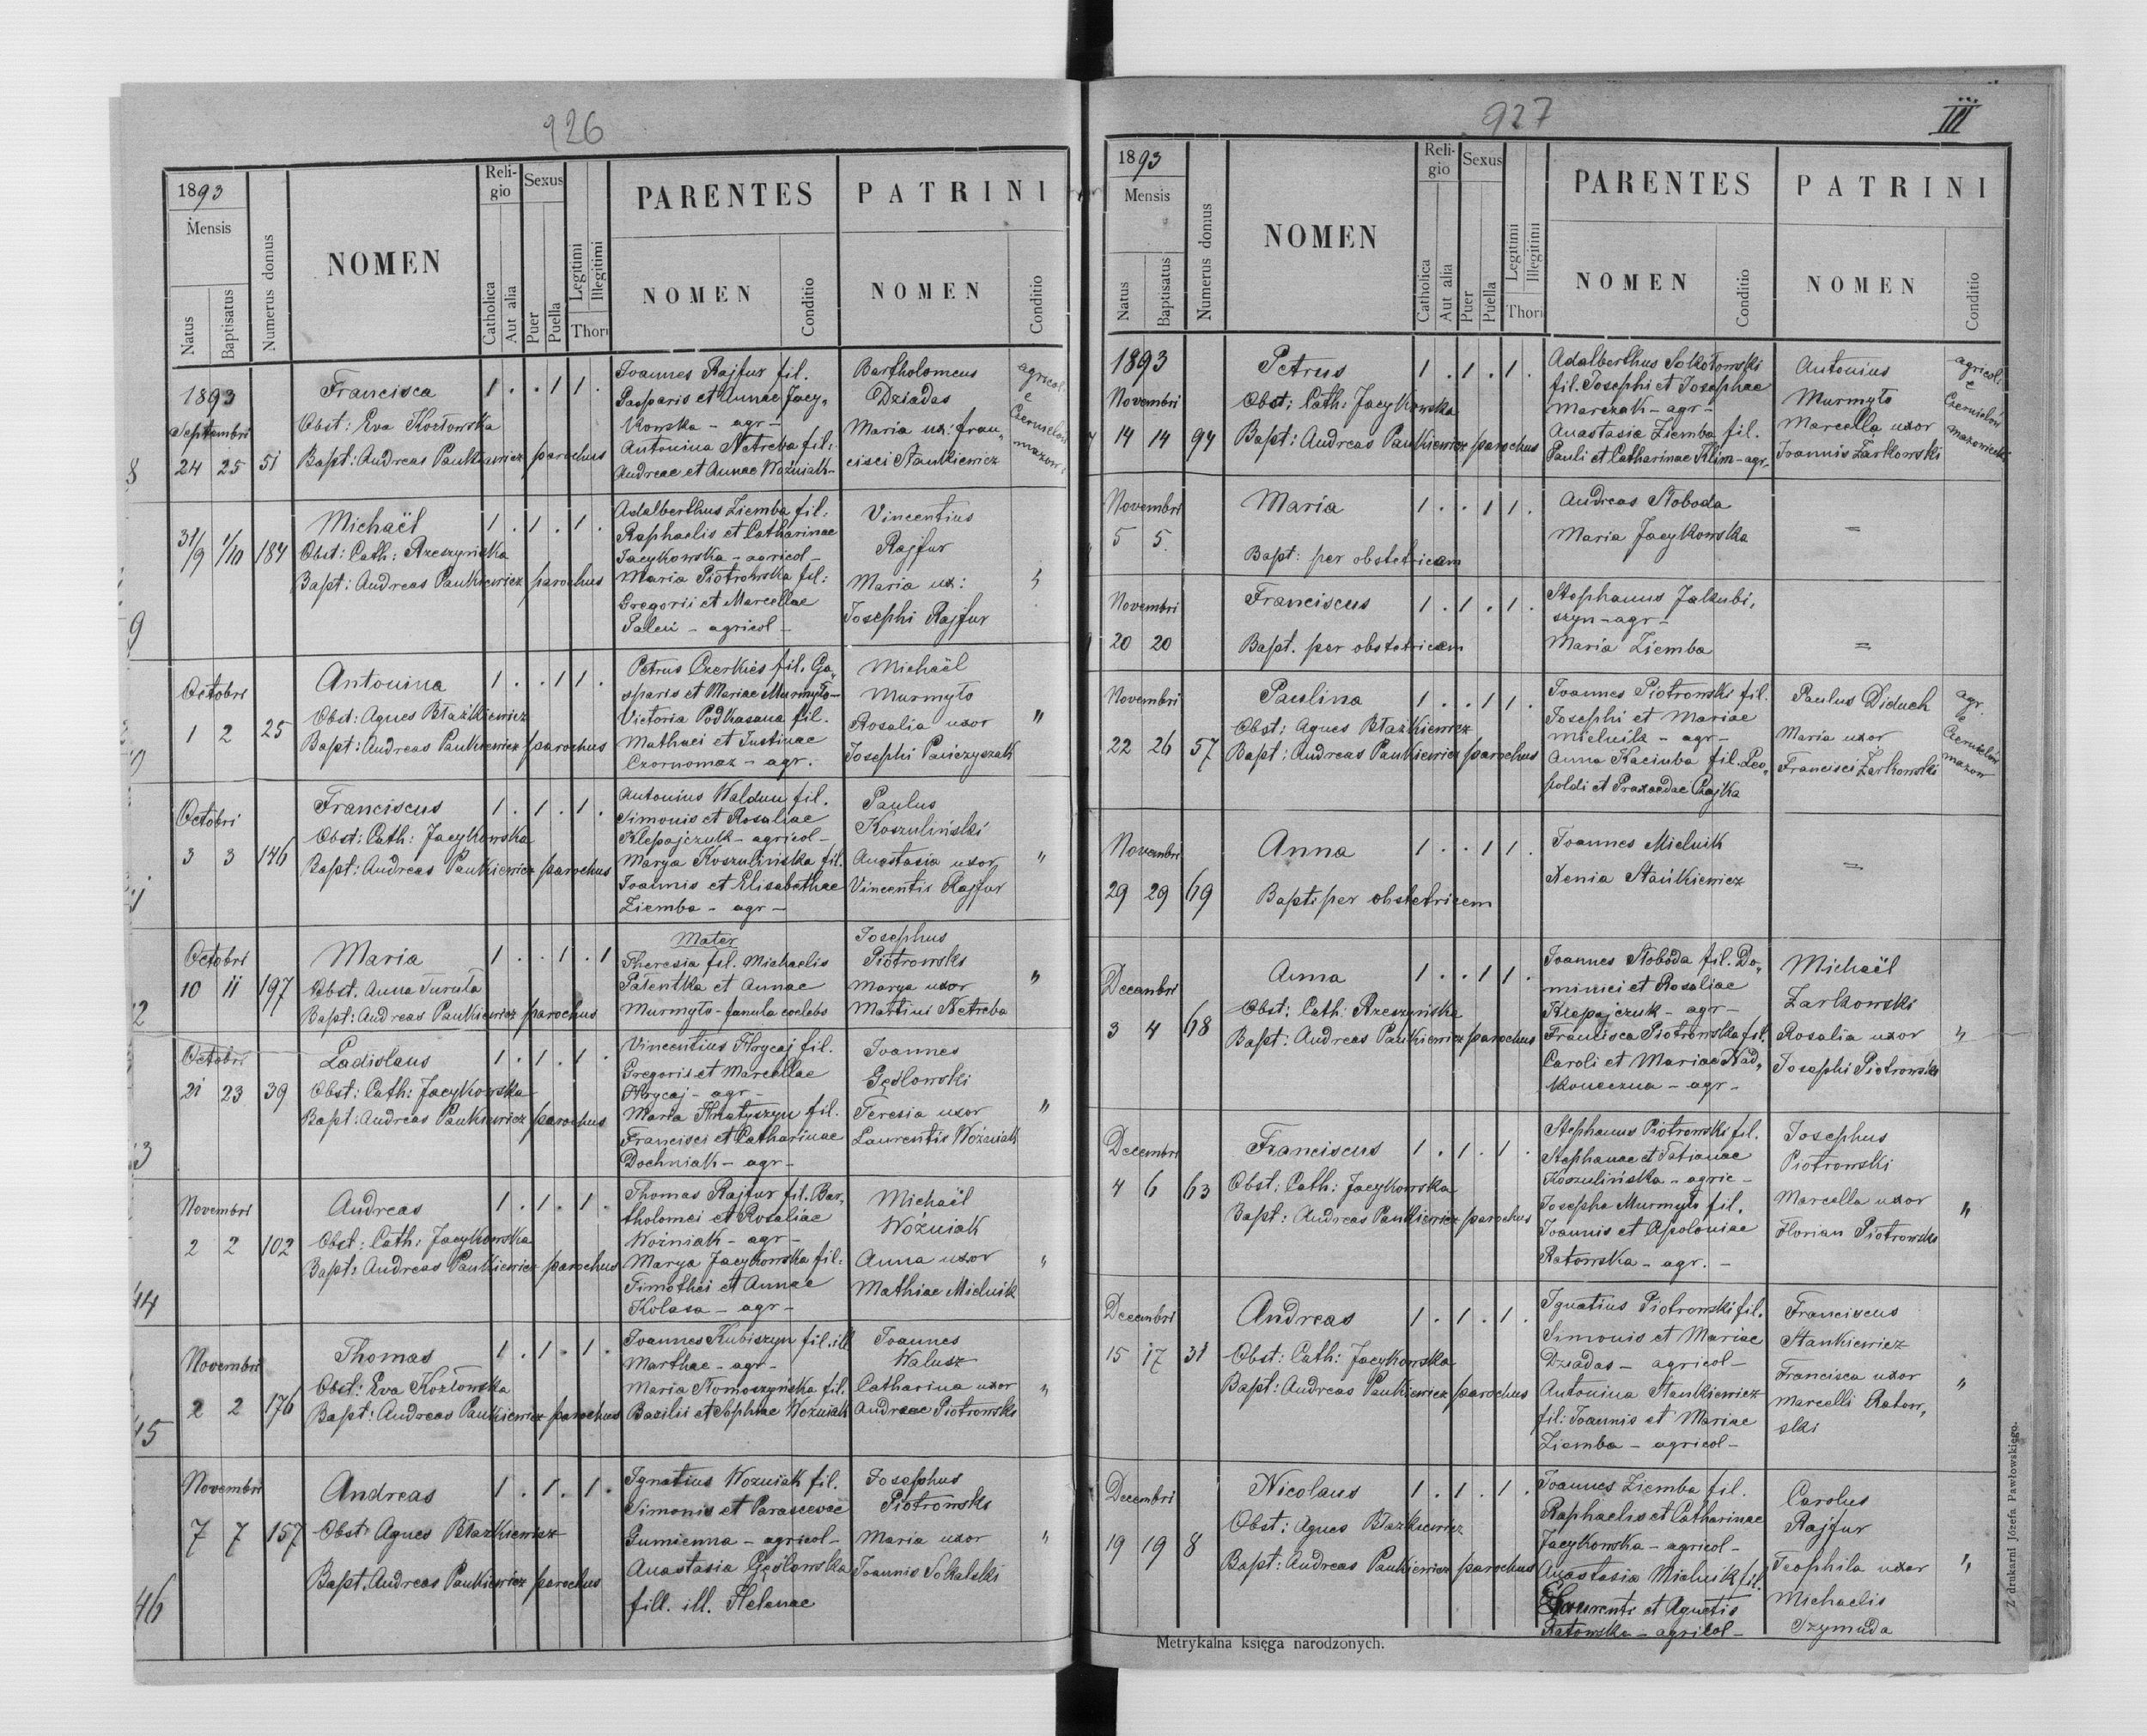 926
1893
Mensis
Natus
Baptisatus
Numerus domus
NOMEN
Religio
Catholica
Aut alia
Sexus
Puer
Puella
Legitimi
Illegitimi
Thori
PARENTES
NOMEN
Conditio
PATRINI
NOMEN
Conditio
8
1893
Septembri
24 25 51
Francisca
Obst: Eva Kozłowska
Bapt: Andreas Pankiewicz parochus
1 . . 1 1 .
Joannes Rajfur fil.
Gasparis et Annae Jacy„
kowska - agr -
Antonina Netreba fil:
Andreae et Annae Woźniak -
Bartholomeus
Dziadas
Maria ux: Fran„
cisci Stankiewicz
agricol.
e
Czernielów
mazow:
9
31/9 1/10 184
Michaël
Obst: Cath: Rzeszyńska
Bapt: Andreas Pankiewicz parochus
1 . 1 . 1 .
Adalberthus Ziemba fil:
Raphaelis et Catharinae
Jacykowska - agricol -
Maria Piotrowska fil:
Gregorii et Marcellae
Paleń - agricol -
Vincentius
Rajfur
Maria ux:
Josephi Rajfur
"
Octobri
1 2 25
Antonina
Obst: Agnes Błażkiewicz
Bapt: Andreas Pankiewicz parochus
1 . . 1 1 .
Petrus Czerkies fil. Ga„
sparis et Mariae Murmyło -
Victoria Podkasana fil.
Mathaei et Justinae
Czornomaz - agr.
Michaël
Murmyło
Rosalia uxor
Josephi Paniczyszak
"
Octobri
3 3 146
Franciscus
Obst: Cath: Jacykowska
Bapt: Andreas Pankiewicz parochus
1 . 1 . 1 .
Antonius Waldun fil.
Simonis et Rosaliae
Klepajczuk - agricol -
Marya Koszulińska fil.
Joannis et Elisabethae
Ziemba - agr -
Paulus
Koszuliński
Anastasia uxor
Vincentis Rajfur
"
2
Octobri
10 11 197
Maria
Obst. Anna Turuła
Bapt: Andreas Pankiewicz parochus
1 . . 1 . 1
Mater
Theresia fil. Michaelis
Patentka et Annae
Murmyło - famula coelebs
Josephus
Piotrowski
Marya uxor
Martini Netreba
"
3
Octobri
21 23 39
Ladislaus
Obst: Cath: Jacykowska
Bapt: Andreas Pankiewicz parochus
1 . 1 . 1 .
Vincentius Hrycaj fil.
Gregoris et Marcellae
Hrycaj - agr -
Maria Hnatyszyn fil.
Francisci et Catharinae
Dochniak - agr -
Joannes
Gęślowski
Teresia uxor
Laurentis Woźniak
"
44
Novembri
2 2 102
Andreas
Obst: Cath: Jacykowska
Bapt: Andreas Pankiewicz parochus
1 . 1 . 1 .
Thomas Rajfur fil. Bar„
tholomei et Rosaliae
Woźniak - agr -
Marya Jacykowska fil:
Timothëi et Annae
Kolasa - agr -
Michaël
Woźniak
Anna uxor
Mathiae Mielnik
"
45
Novembri
2 2 176
Thomas
Obst: Eva Kozłowska
Bapt: Andreas Pankiewicz parochus
1 . 1 . 1 .
Joannes Kubiszyn fil. ill
Marthae - agr -
Maria Słomoszyńska fil.
Bazilii et Sophiae Woźniak
Joannes
Walusz
Catharina uxor
Andreae Piotrowski
"
46
Novembri
7 7 157
Andreas
Obst: Agnes Błazkiewicz
Bapt. Andreas Pankiewicz parochus
1 . 1 . 1 .
Ignatius Woźniak fil.
Simonis et Parascevae
Gumienna - agricol -
Anastasia Gęślowska
fill. ill. Helenae
Josephus
Piotrowski
Maria uxor
Joannis Sokalski
"
927
III
1893
Mensis
Natus
Baptisatus
Numerus domus
NOMEN
Religio
Catholica
Aut alia
Sexus
Puer
Puella
Legitimi
Illegitimi
Thori
PARENTES
NOMEN
Conditio
PATRINI
NOMEN
Conditio
1893
Novembri
14 14 94
Petrus
Obst: Cath: Jacykowska
Bapt: Andreas Pankiewicz parochus
1 . 1 . 1 .
Adalberthus Sokołowski
fil. Josephi et Josephae
Marczak - agr -
Anastasia Ziemba fil.
Pauli et Catharinae Klim - agr -
Antonius
Murmyło
Marcella uxor
Joannis Żarkowski
agricoli
e
Czernielów
mazowiecki
Novembri
5 5.
Maria
Bapt: per obstetricem
1 . . 1 1 .
Andreas Słoboda
Maria Jacykowska
=
Novembri
20 20
Franciscus
Bapt. per obstetricem
1 . 1 . 1 .
Stephanus Jakubi,
szyn - agr -
Maria Ziemba
=
Novembri
22 26 57
Paulina
Obst: Agnes Błażkiewicz
Bapt: Andreas Pankiewicz parochus
1 . . 1 1 .
Joannes Piotrowski fil.
Josephi et Mariae
Mielnik - agr -
Anna Kaciuba fil. Leo„
poldi et Praxedae Czajka
Paulus Diduch
Maria uxor
Francisci Żarkowski
agr.
e
Czernielów
mazow
Novembri
29 29 69
Anna
Bapt: per obstetricem
1 . . 1 1 .
Joannes Mielnik
Xenia Stańkiewicz
=
Decembri
3 4 68
Anna
Obst: Cath: Rzeszyńska
Bapt: Andreas Pankiewicz parochus
1 . . 1 1 .
Joannes Słoboda fil. Do„
minici et Rosaliae
Klepajczuk - agr -
Francisca Piotrowska fil.
Caroli et Mariae Nad„
koneczna - agr -
Michaël
Żarkowski
Rosalia uxor
Josephi Piotrowski
"
Decembri
4 6 63
Franciscus
Obst: Cath: Jacykowska
Bapt: Andreas Pankiewicz parochus
1 . 1 . 1 .
Stephanus Piotrowski fil.
Stephanae et Tatianae
Koszulińska - agric -
Josepha Murmyło fil.
Joannis et Apoloniae
Ratowska - agr. -
Josephus
Piotrowski
Marcella uxor
Florian Piotrowski
"
Decembri
15 17 31
Andreas
Obst: Cath: Jacykowska
Bapt: Andreas Pankiewicz parochus
1 . 1 . 1 .
Ignatius Piotrowski fil.
Simonis et Mariae
Dziadas - agricol -
Antonina Stankiewicz
fil: Joannis et Mariae
Ziemba - agricol -
Franciscus
Stankiewicz
Francisca uxor
Marcelli Ratow,
ski
"
Decembri
19 19 8
Nicolaus
Obst: Agnes Błazkiewicz
Bapt: Andreas Pankiewicz parochus
1 . 1 . 1 .
Joannes Ziemba fil.
Raphaelis et Catharinae
Jacykowska - agricol -
Anastasia Mielnik fil.
Laurenti et Agnetis
Ratowska - agricol -
Carolus
Rajfur
Teophila uxor
Michaelis
Szymuda
"
Metrykalna księga narodzonych.
Z drukarni Józefa Pawłowskiego.